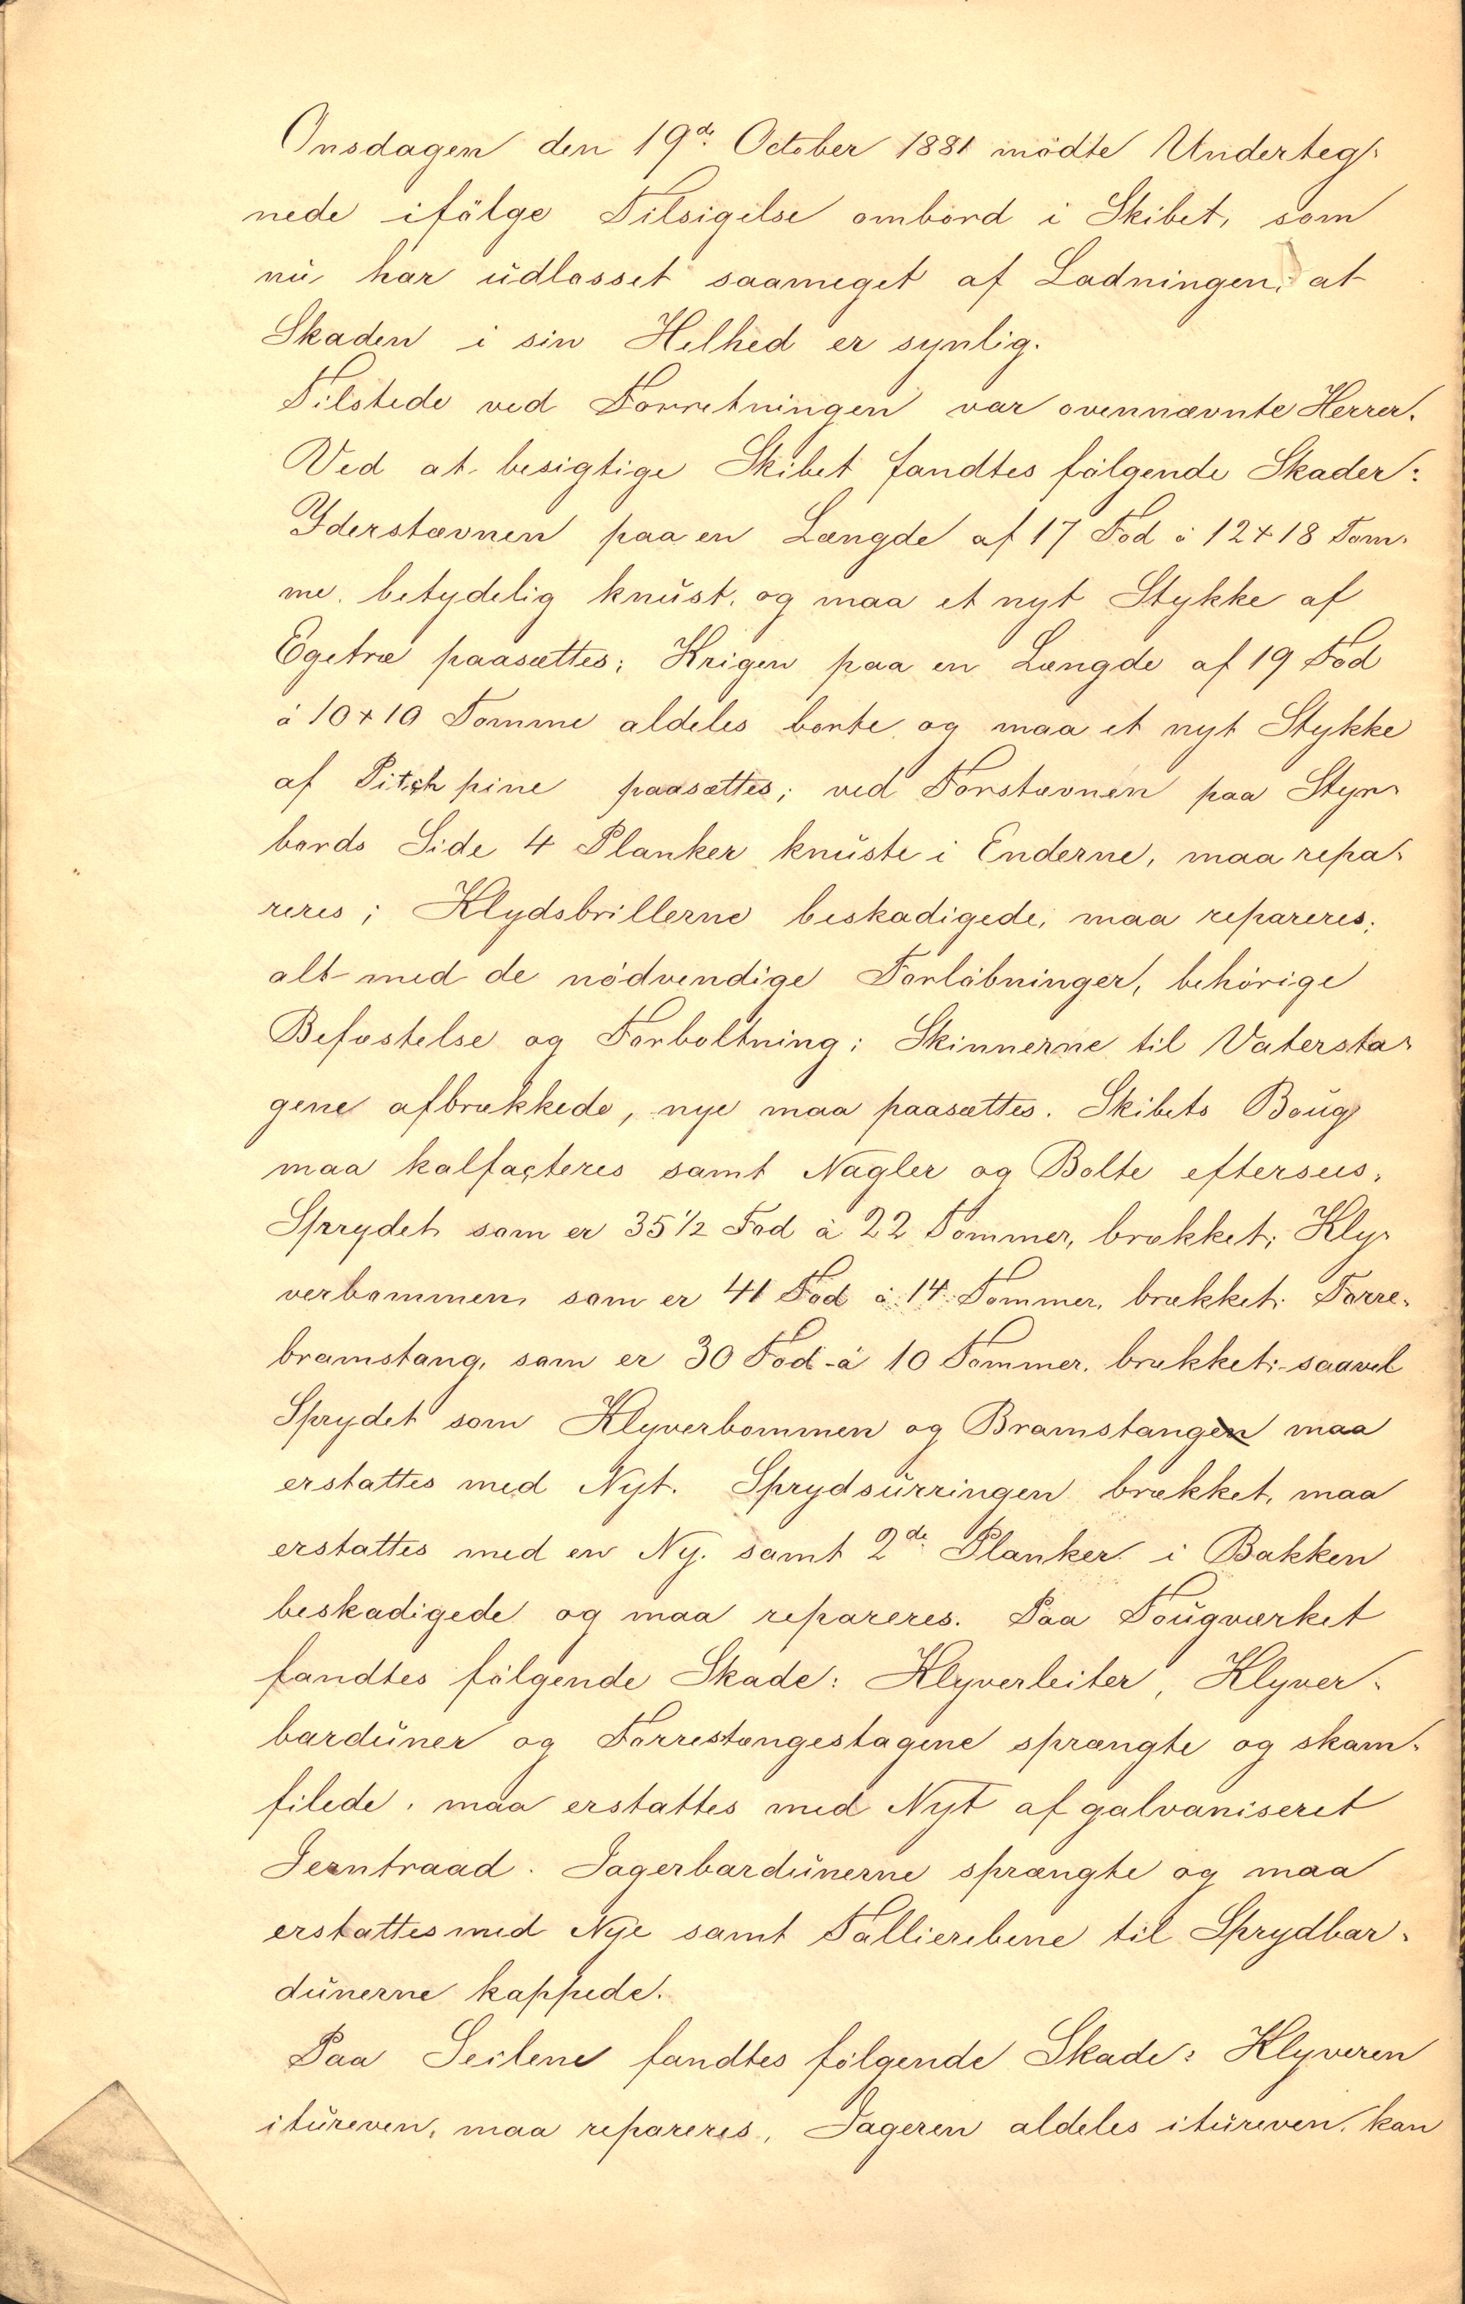 Onsdagen den 19de October 1881 mödte Underteg-
nede ifölge Tilsigelse ombord i Skibet, som
nu har udlosset saameget af Ladningen, at
Skaden i sin Helhed er synlig.
Tilstede ved Forretningen var ovennævnte Herrer.
Ved at besigtige Skibet fandtes fölgende Skader:
Yderstævnen paa en Længde af 17 Fod á 12 + 18 Tom-
me, betydelig knust, og maa et nyt Stykke af
Egetræ paasættes; Krigen paa en Længde af 19 Fod
á 10 + 10 Tomme aldeles borte og maa et nyt Stykke
af Pitch pine paasættes; ved Forstævnen paa Styr-
bords Side 4 Planker knuste i Enderne, maa repa-
reres; Klydsbrillerne beskadigede, maa repareres;
alt med de nödvendige Forlöbninger, behörige
Befæstelse og Forboltning; Skinnerne til Vatersta-
gene afbrækkede, nye maa paasættes. Skibets Boug
maa kalfacteres samt Nagler og Bolte eftersees.
Sprydet som er 35 1/2 Fod á 22 Tommer, brækket; Kly-
verbommen, som er 41 Fod á 14 Tommer, brækket; Forre-
bramstang, som er 30 Fod á 10 Tommer, brækket; saavel
Sprydet som Klyverbommen og Bramstangen maa
erstattes med Nyt. Sprydsurringen brækket, maa
erstattes med en Ny. samt 2de Planker i Bakken
beskadigede og maa repareres. Paa Tougværket
fandtes fölgende Skade: Klyverleiter, Klyver-
barduner og Forrestangestagene sprængte og skam-
filede, maa erstattes med Nyt af galvaniseret
Jerntraad. Jagerbardunerne sprængte og maa
erstattes med Nye samt Tallierebene til Sprydbar-
dunerne kappede.
Paa Seilene fandtes fölgende Skade: Klyveren
itureven, maa repareres, Jageren aldeles itureven, kan